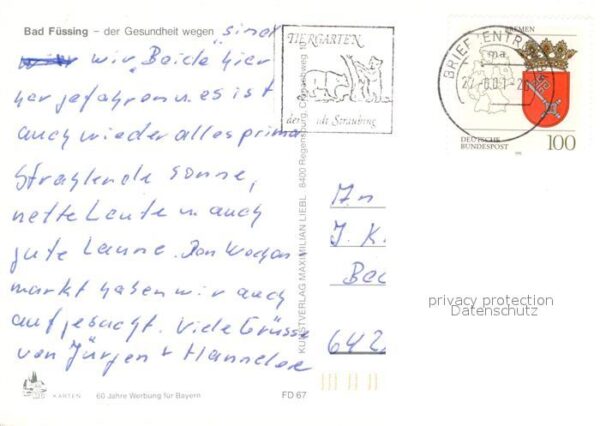 Bad Füssing – der Gesundheit wegen sind
wir "Beide" hier
her gefahren u. es ist
auch wieder alles prima
Strahlende Sonne,
nette Leute u. auch
gute Laune. Den Wochen
markt haben wir auch
aufgesucht. Viele Grüsse
von Jürgen + Hannelore
KARTEN 60 Jahre Werbung für Bayern FD 67
KUNSTVERLAG MAXIMILIAN LIEBL 8400 Regensburg,
TIERGARTEN
der Stadt Straubing
BRIEFZENTRUM
BREMEN
DEUTSCHE
BUNDESPOST
100
An
J. K
642
privacy protection
Datenschutz